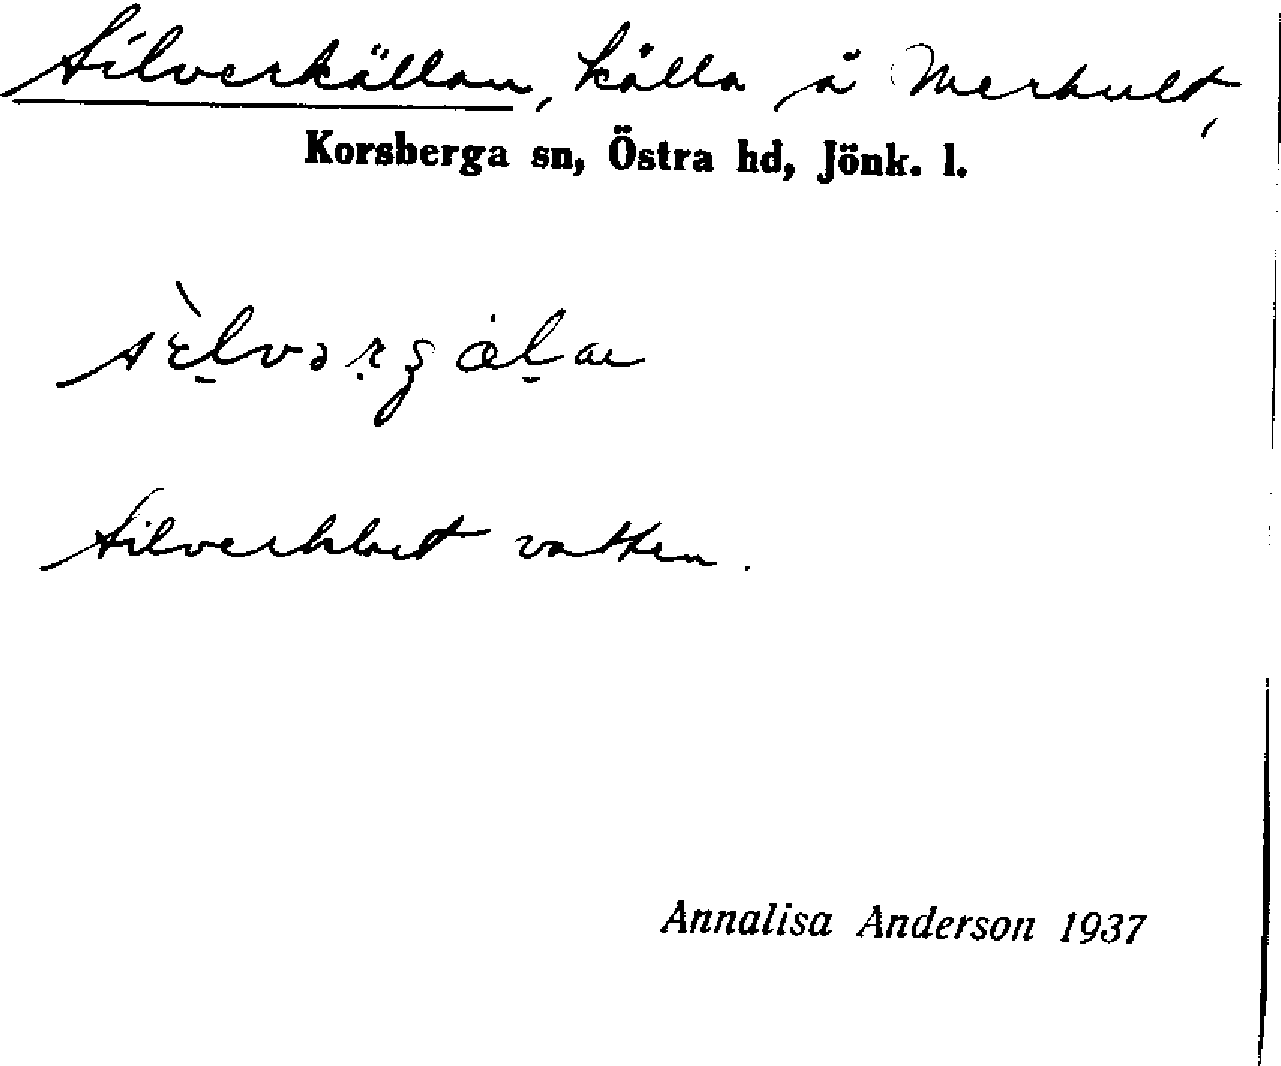 Silverkällan, källa å Merhult,
Korsberga sn, Östra hd, Jönk. l.
Silverklart vatten.
Annalisa Anderson 1937